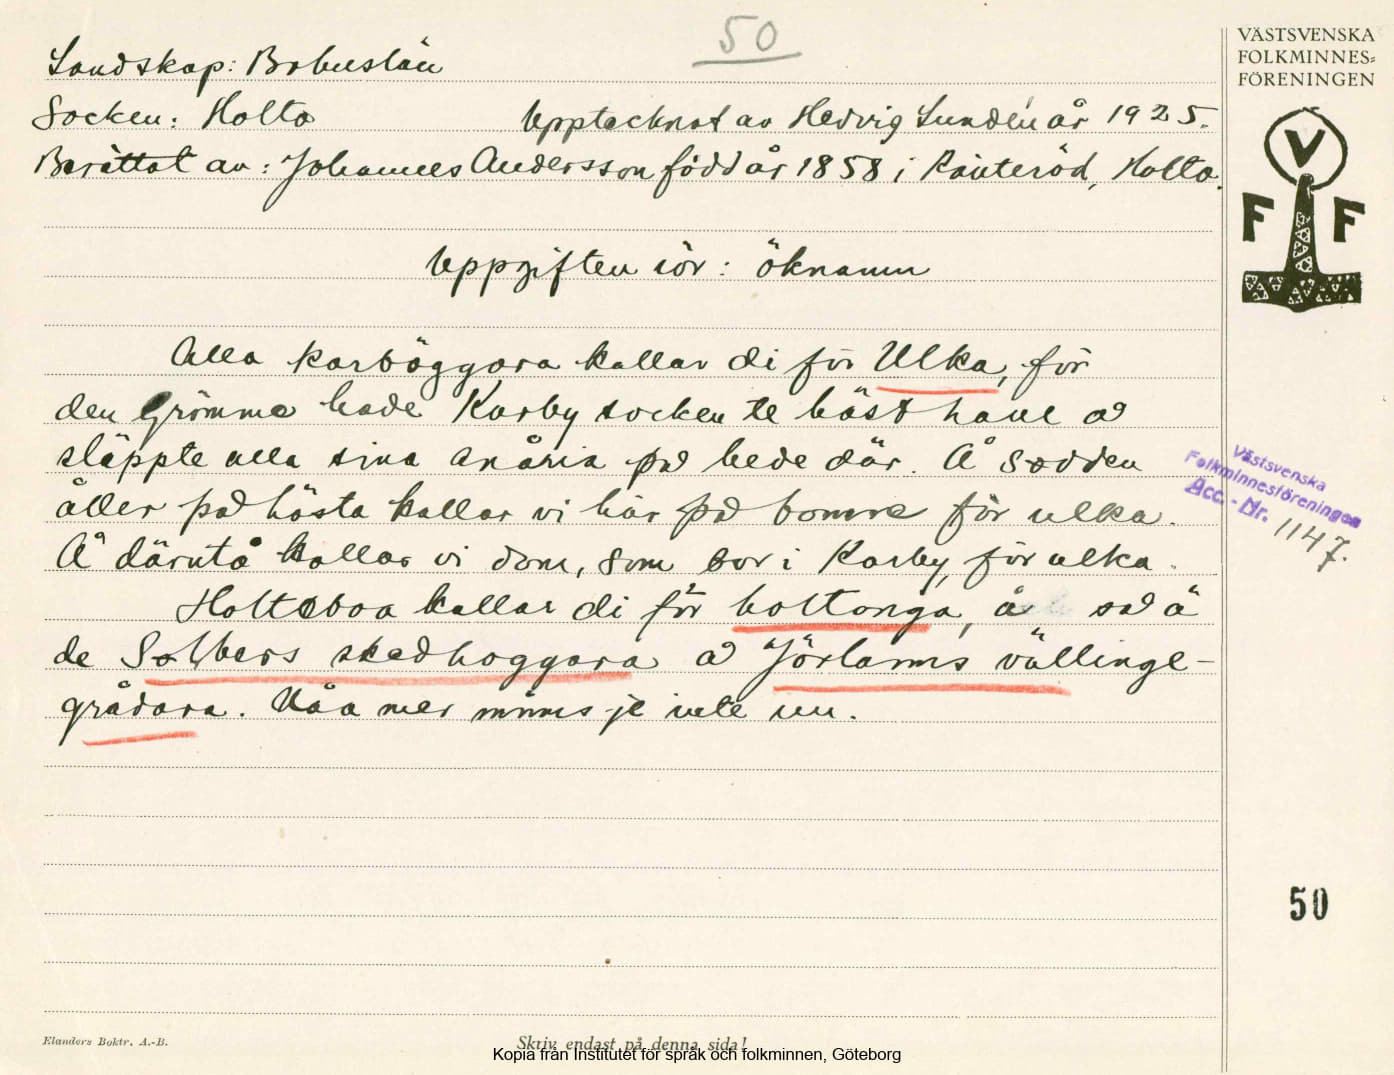 50
VÄSTSVENSKA
FOLKMINNES=
FÖRENINGEN
V
F F
Landskap: Bohuslän
Socken: Holta Upptecknat av Hedvig Lundén år 1925.
Berättat av: Johannes Andersson född år 1858 i Ränteröd, Holta.
Uppgiften rör: öknamn
Alla karböggara kallar di för Ulka, för
den grömma hade Karby socken te häst have å
släppte alla sina snåria på bede där. Å sådden
åller på hästa kallar vi här på för ulka.
Å däruta kallar vi dom, som bor i Karby, för ulka.
Holteboa kallar di för holtonga, å så ä
de Solbers skedhoggara å Jörlanns vällinge-
grådara. Nåa mer minns je inte nu.
Västsvenska
Folkminnesföreningen
Acc.-Nr. 1147.
50
Elanders Boktr. A.-B.
Skriv endast på denna sida!
Kopia från Institutet för språk och folkminnen, Göteborg